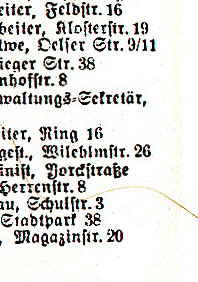 eiter, Feldstr. 16
beiter, Klosterstr. 19
twe, Oelser Str. 9/11
ieger Str. 38
nhofstr. 8
waltungs-Sekretär,
iter, Ring 16
gest., Wilehlmstr. 26
inist, Yorckstraße
Herrenstr. 8
au, Schulstr. 3
Stadtpark 38
, Magazinstr. 20